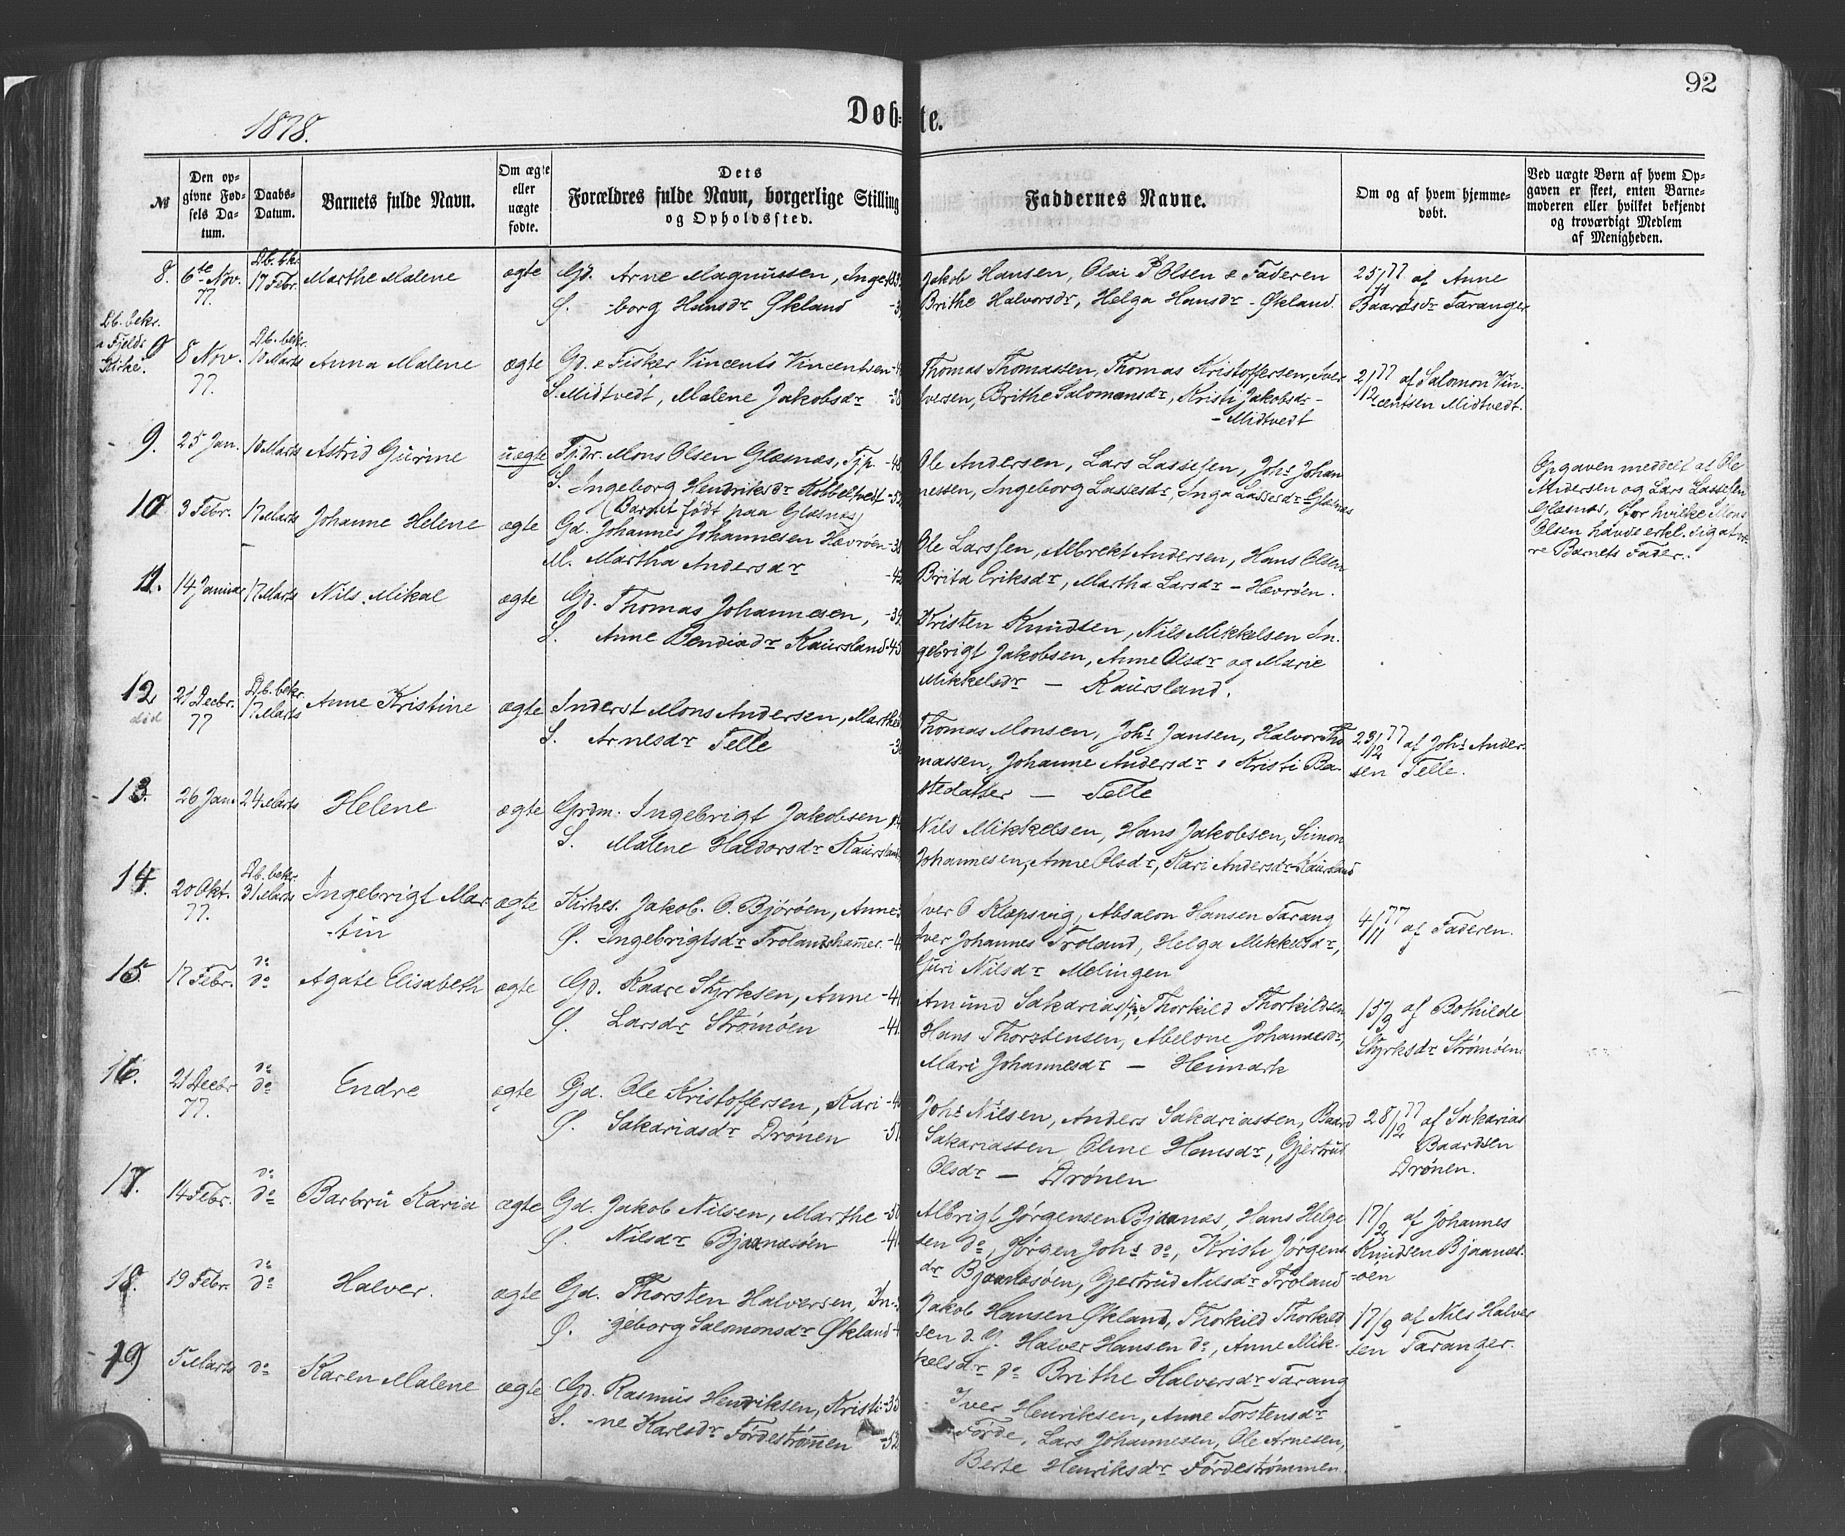 92
1878.
Døb-te.
№
Den op-
givne Fød-
sels Da-
tum.
Daabs-
Datum.
Barnets fulde Navn.
Om ægte
eller
uægte
fødte.
Dets
Forældres fulde Navn, borgerlige Stilling
og Opholdssted.
Faddernes Navne.
Om og af hvem hjemme-
døbt.
Ved uægte Børn af hvem Op-
gaven er skeet, enten Barne-
moderen eller hvilket bekjendt
og troværdigt Medlem
af Menigheden.
8. 6te Nov. 77. Db. bk. 17 Febr. Marthe Malene ægte
Gd. Arne Magnussen, Inge-
Ø. borg Hansdr Økland
Jakob Hansen, Olai Olsen & Faderen
Brithe Halvorsdr, Helga Hansdr - Økland.
25/11 77 af Anne
Baardsdr Taranger
Db. bekr.
i Fjelds
Kirke.
8 Nov. 77. Db. bekr. 10 Marts Anna Malene ægte
Gd. & Fisker Vincents Vincentsen
S. Midtvedt, Malene Jakobsdr - 38
Thomas Thomassen, Thomas Kristoffersen, Iver
Iversen, Brithe Salomonsdr, Kristi Jakobsdr -
- Midtvedt
2/12 77 af Salomon Vin-
centsen Midtvedt.
9. 25 Jan. 10 Marts Astrid Gurine uægte
Tj.dr. Mons Olsen Glæsnæs, Tjp. - 48
S. Ingeborg Henriksdr Kobbeltvedt - 52
(Barnet født paa Glæsnæs)
Ole Andersen, Lars Lassesen, Johs Johan
nessen, Ingeborg Lassesdr, Inga Lassesdr Glæsnæs
Opgaven meddelt af Ole
Andersen og Lars Lassesen
Glæsnæs, for hvilke Mons
Olsen havde erkl. sig at væ-
re Barnets Fader.
10 3 Febr. 17 Marts Johanne Helene ægte
Gd. Johannes Johannesen Hævrøen - 38
M. Martha Andersdr - 42
Ole Larssen, Albrekt Andersen, Hans Olsen
Brita Eriksdr, Martha Larsdr - Hævrøen.
11. 14 Januar 17 Marts Nils Mikal ægte
Gd. Thomas Johannesen, - 39
S. Anne Bendixdr Kaursland - 45
Kristen Knudsen, Nils Mikkelsen In-
gebrigt Jakobsen, Anne Olsdr og Marie
Mikkelsdr - Kaursland.
12 død 21 Decbr. 77 Db. bekr. 17 Marts Anne Kristine ægte
Inderst Mons Andersen, Marthe
S. Arnesdr Telle
Thomas Monsen, Johs Jansen, Halvor Tho
massen, Johanne Andersdr & Kristi Ba-
stedatter - Telle
23/12 77 af Johs Ander-
sen Telle.
13. 26 Jan. 24 Marts Helene ægte
Grdm. Ingebrigt Jakobsen
S. Malene Haldorsdr Kaursland
Nils Mikkelsen, Hans Jakobsen, Simon
Johannesen, Anne Olsdr, Kari Andersdr - Kaursland
14. 20 Okt. 77. Db. bekr. 31 Marts Ingebrigt Mar-
tin ægte
Kirkes. Jakob. O. Bjørøen, Anne
Ø. Ingebrigtsdr Trolandshammer.
Iver O Klepsvig, Absalon Hansen Tarang
Iver Johannes Troland, Helga Mikkelsdr,
Guri Nilsdr Melingen
4/11 77 af Faderen.
15. 17 Febr. do do Agate Elisabeth ægte
Gd. Kaare Styrksen, Anne
Ø. Larsdr Strømøen
Amund Sakariassen, Thorkild Thorkildsen
Hans Thorstensen, Abelone Johannesdr,
Mari Johannesdr - Heimark
15/3 af Bothilde
Styrksdr Strømøen
16. 21 Decbr 77. do do Endre ægte
Gd. Ole Kristoffersen, Kari
Ø. Sakariasdr Drønen - 51
Johs Nilsen, Anders Sakariassen, Baard
Sakariassen, Oline Hansdr, Gjertrud
Olsdr - Drønen
28/12 77 af Sakarias
Baardsen
Drønen.
17. 14 Febr. do do Barbru Karia ægte
Gd. Jakob Nilsen, Marthe - 50
Ø. Nilsdr Bjaanesøen
Albrigt Jørgensen Bjaanæs, Hans Helge
sen do, Jørgen Johs do, Kristi Jørgens
dr Bjaanesøen, Gjertrud Nilsdr Troland
17/2 af Johannes
Knudsen Bjaanæs-
øen
18. 19 Febr. do do Halver. ægte
Gd. Thorsten Halversen, In-
Ø. geborg Salomonsdr Økland
Jakob Hansen Økland, Thorkild Thorkild
sen d. G. Halver Hansen do, Anne Mik-
kelsdr do Brithe Halversdr Tarang
17/3 af Nils Halver
sen Taranger.
19 5 Marts do Karen Malene ægte
Gd. Rasmus Henriksen, Kristi - 35
S. -ne Karlsdr Førdestrømmen - 52
Iver Henriksen, Anne Torstensdr
Førde, Lars Johannesen, Ole Arnesen,
Berte Henriksdr Førdestrømmen.